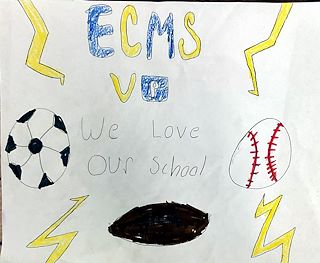 ECMS
VP
We Love
Our School